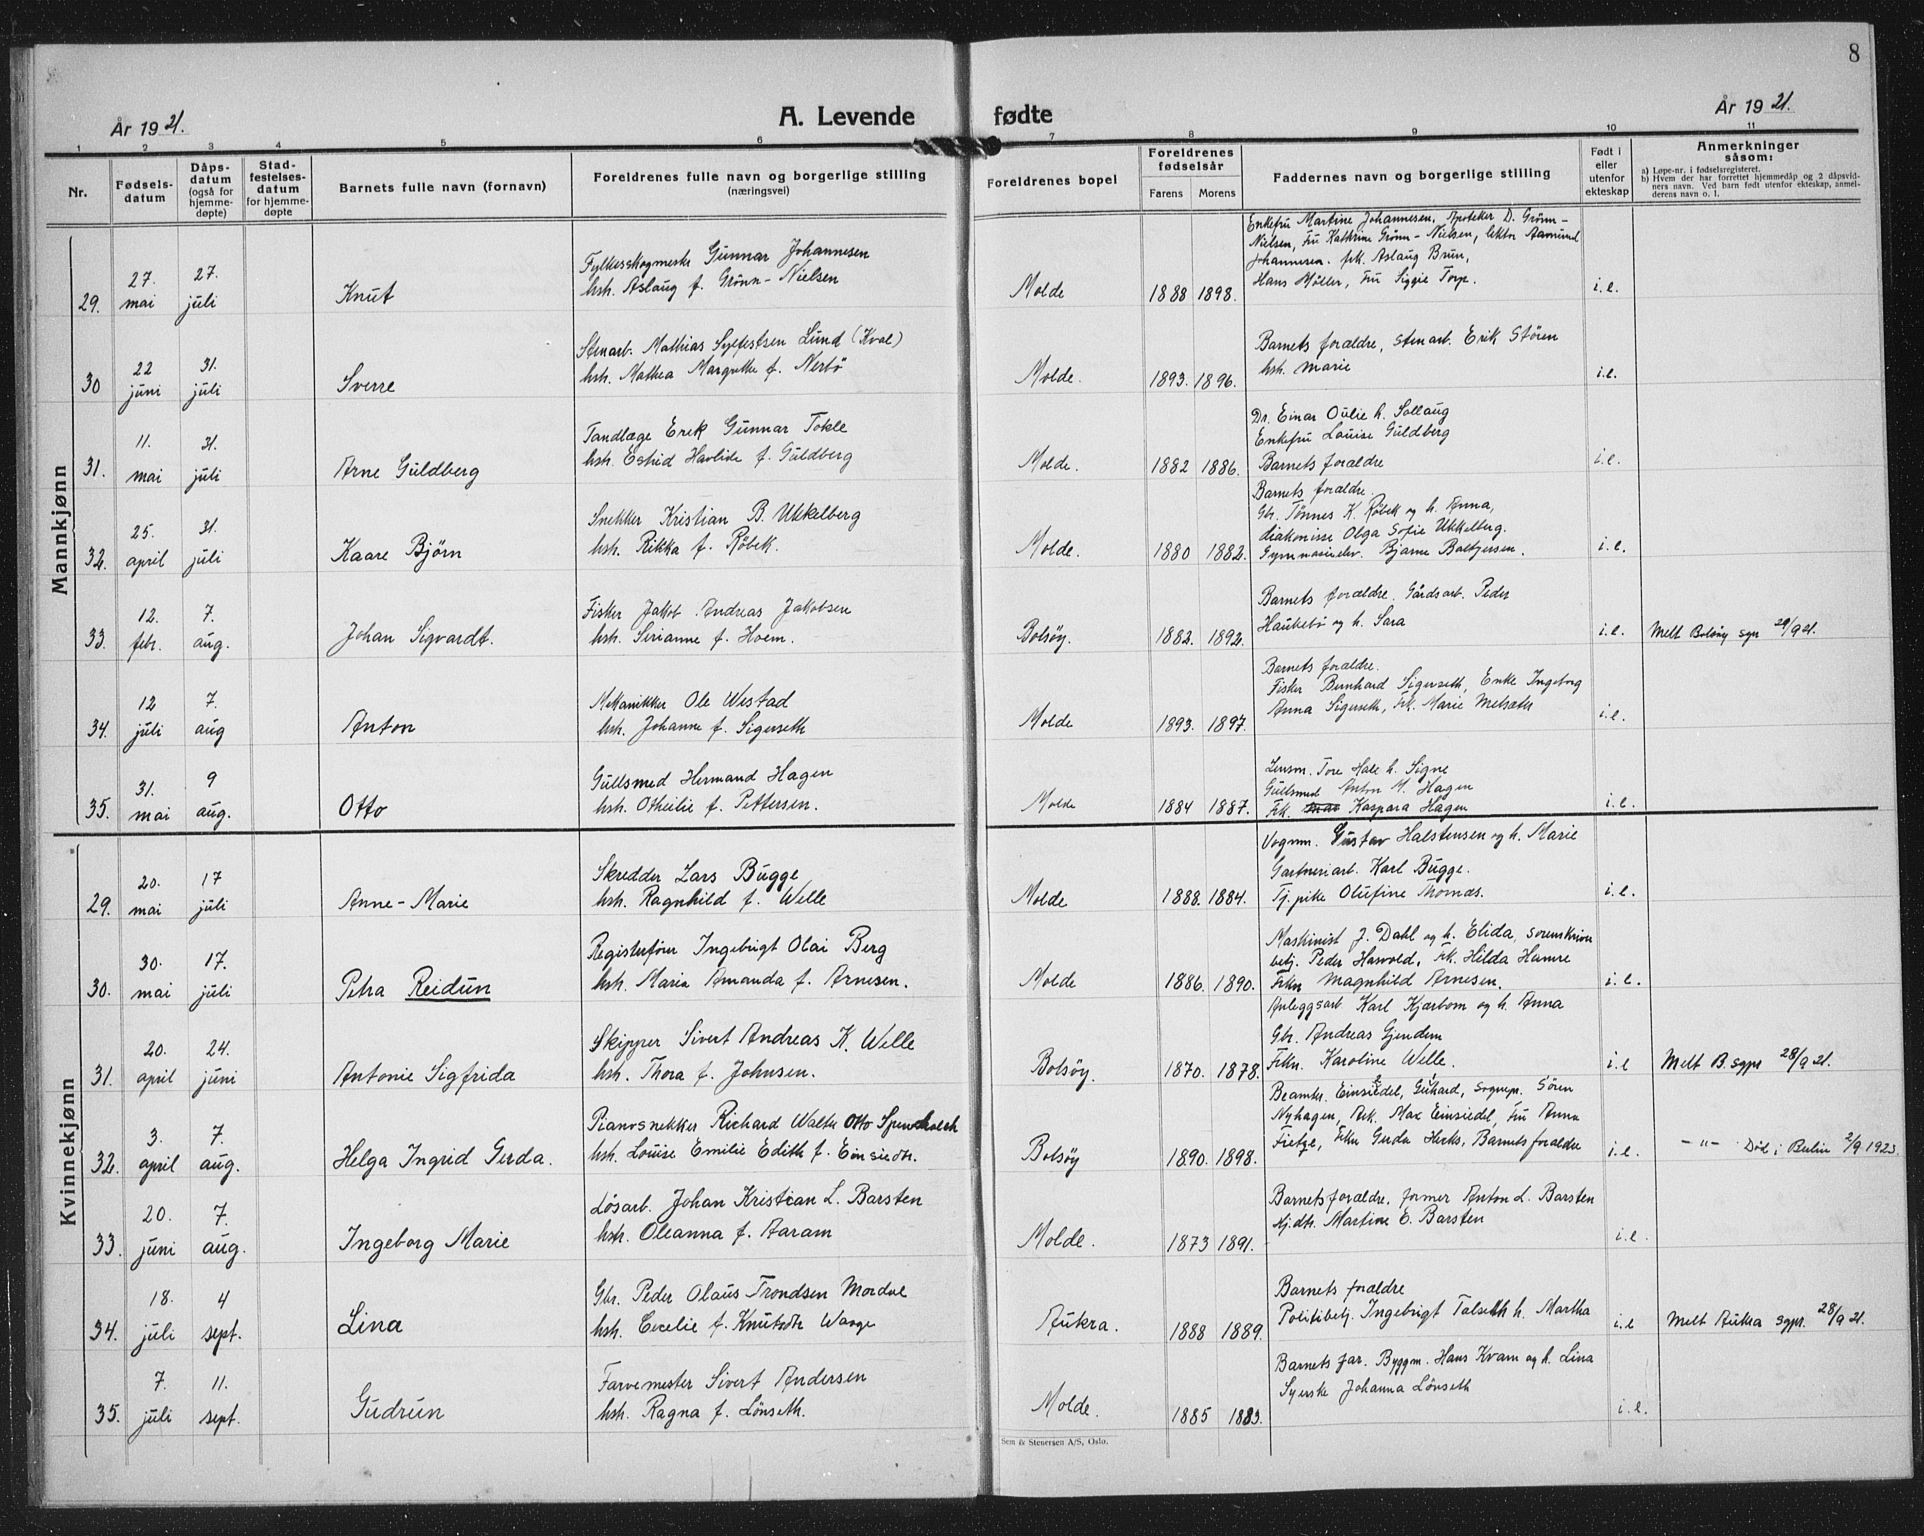 8
År 1921.
A. Levende fødte
År 1921.
1 2 3 4 5 6 7 8 9 10 11
Nr.
Fødsels-
datum
Dåps-
datum
(også for
hjemme-
døpte)
Stad-
festelses-
datum
for hjemme-
døpte
Barnets fulle navn (fornavn)
Foreldrenes fulle navn og borgerlige stilling
(næringsvei)
Foreldrenes bopel
Foreldrenes
fødselsår
Farens Morens
Faddernes navn og borgerlige stilling
Født i
eller
utenfor
ekteskap
Anmerkninger
såsom:
a) Løpe-nr. i fødselsregisteret.
b) Hvem der har forrettet hjemmedåp og 2 dåpsvid-
ners navn. Ved barn født utenfor ekteskap, anmel-
derens navn o. l.
Mannkjønn
29. 27. mai 27. juli Knut
Fylkesskogmester Gunnar Johannesen
hstr. Aslaug f. Grønn-Nielsen
Molde 1888 1898.
Enkefru Martine Johannesen, Apoteker D. Grönn-
Nielsen, Fru Kathrine Grønn-Nielsen, lektor Aamund
Johannesen. frk. Aslaug Brun,
Hans Møller, Fru Siggie Torp.
i.e.
30 22 juni 31. juli Sverre
Stenarb. Mathias Sylfestsen Lund (Kval)
hstr. Mathea Margrethe f. Nerbö
Molde. 1893. 1896.
Barnets forældre, stenarb. Erik Stören
hstr. Marie
i.e.
31. 11. mai 31. juli Arne Guldberg
Tandlæge Erik Gunnar Tokle
hstr. Estrid Havlide f. Guldberg
Molde. 1882 1886.
Dr. Einar Oulie h. Sollaug
Enkefru Louise Guldberg
Barnets forældre
i.e.
32. 25. april 31. juli Kaare Bjørn
Snekker Kristian B. Ukkelberg
hstr. Rikka f. Røbek.
Molde. 1880 1882.
Barnets forældre.
Gbr. Tønnes K. Røbek og h. Anna,
diakonisse Olga Sofie Ukkelberg.
Gymnasieelev. Bjarne Boltjessen.
i.e.
33. 12. febr. 7. aug. Johan Sigvardt.
Fisker Jakob Andreas Jakobsen
hstr. Sirianne f. Hoem.
Bolsöy. 1882. 1892.
Barnets forældre. Gårdsarb. Peder
Haukebø og h. Sara
i.e. Melt Bolsöy sgp 29/9 21.
34. 12 juli 7. aug Anton
Mekanikker Ole Westad
hstr. Johanne f. Sigerseth
Molde 1893. 1897.
Barnets forældre.
Fisker Bernhard Sigerseth, Enke Ingeborg
Anna Sigerseth, Frk. Marie Melsæth
i.e.
35. 31. mai 9 aug. Otto
Gullsmed Hermand Hagen
hstr. Otheilie f. Pettersen.
Molde 1884 1887.
Lensm. Tore Hale h. Signe
Gullsmed Anton M. Hagen
Frk. Kaspara Hagen
i.e.
Kvinnekjønn
29. 20. mai 17 juli Anne-Marie
Skredder Lars Bugge
hstr. Ragnhild f. Welle
Molde 1888. 1884.
Vognm. Gustav Halstensen og h. Marie
Gartneriarb. Karl Bugge.
Tj.pike Olufine Thomas.
i.e.
30. 30. mai 17. juli Petra Reidun
Registerfører Ingebrigt Olai Berg
hstr. Maria Amanda f. Arnesen.
Molde 1886. 1890.
Maskinist J. Dahl og h. Elida, sorenskriver
betj. Peder Hasvold, Frk. Hilda Hamre
Frkn Magnhild Arnesen.
i.e.
31. 20. april 24. juni Antonie Sigfrida
Skipper Sivert Andreas K. Welle
hstr. Thora f. Johnsen.
Bolsöy. 1870. 1878.
Anleggsarb Karl Kjærbom og h. Anna
Gbr. Andreas Gjendem
Frkn. Karoline Welle.
i.e Melt B. sgpr 28/9 21.
32. 3. april 7. aug. Helga Ingrid Gerda.
Pianosnekker Richard Walter Otto
hstr. Louise Emilie Edith f. Einsiedtr.
Bolsöy 1890. 1898.
Beamter. Einsiedel, Gerhard, sognepr. Sören
Nyhagen, Ark. Max Einsiedel, Fru Anna
Fietze, Frkn Gerda Herks, Barnets forældre
i.e. -"- Död i Berlin 2/9 1923.
33. 20. juni 7. aug. Ingeborg Marie
Løsarb. Johan Kristian L. Barsten
hstr. Oleanna f. Aaram
Molde. 1873 1891.
Barnets forældre, former Anton L. Barsten
Hj.dtr. Martine E. Barsten
i.e.
34. 18. juli 4 sept. Lina
Gbr. Peder Olaus Trondsen Mordal
hstr. Cecelie f. Knutsdtr Waage
Aukra. 1888 1889.
Barnets forældre
Politibetj. Ingebrigt Talseth h. Martha
i.e Melt Aukra sgpr. 28/9 21.
35. 7. juli 11. sept. Gudrun
Farvemester Sivert Andersen
hstr. Ragna f. Lönseth.
Molde. 1885 1883.
Barnets far. Byggm. Hans Kvam og h. Lina
Syerske Johanna Lönseth
i.e.
Sem & Stenersen A/S, Oslo.